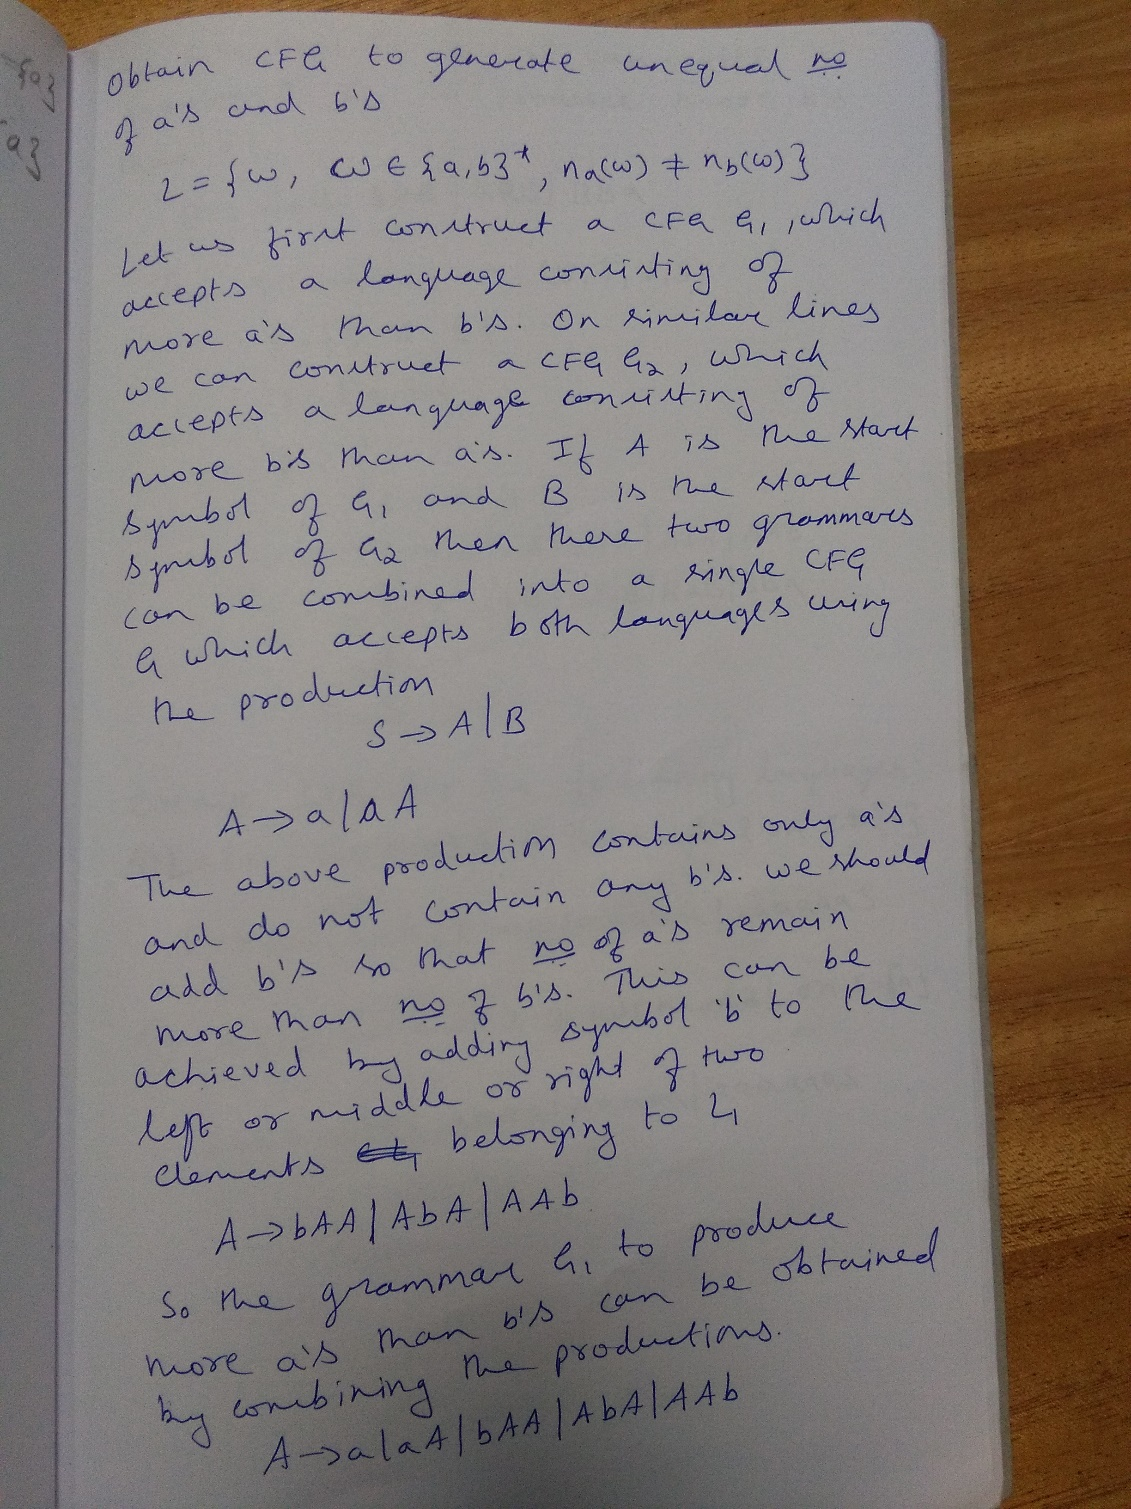 Obtain CFG to generate unequal no
of a's and b's
L = {w, w ∈ {a,b}*, na(w) ≠ nb(w)}
Let us first construct a CFG G1, which
accepts a language consisting of
more a's than b's. On similar lines
we can construct a CFG G2, which
accepts a language consisting of
more b's than a's. If A is the start
symbol of G1 and B is the start
symbol of G2 then these two grammars
can be combined into a single CFG
G which accepts both languages using
the production
S → A|B
A → a|aA
The above production contains only a's
and do not contain any b's. we should
add b's so that no of a's remain
more than no of b's. This can be
achieved by adding symbol 'b' to the
left or middle or right of two
elements belonging to L1
A → bAA|AbA|AAb
So the grammar G1 to produce
more a's than b's can be obtained
by combining the productions.
A → a|aA|bAA|AbA|AAb